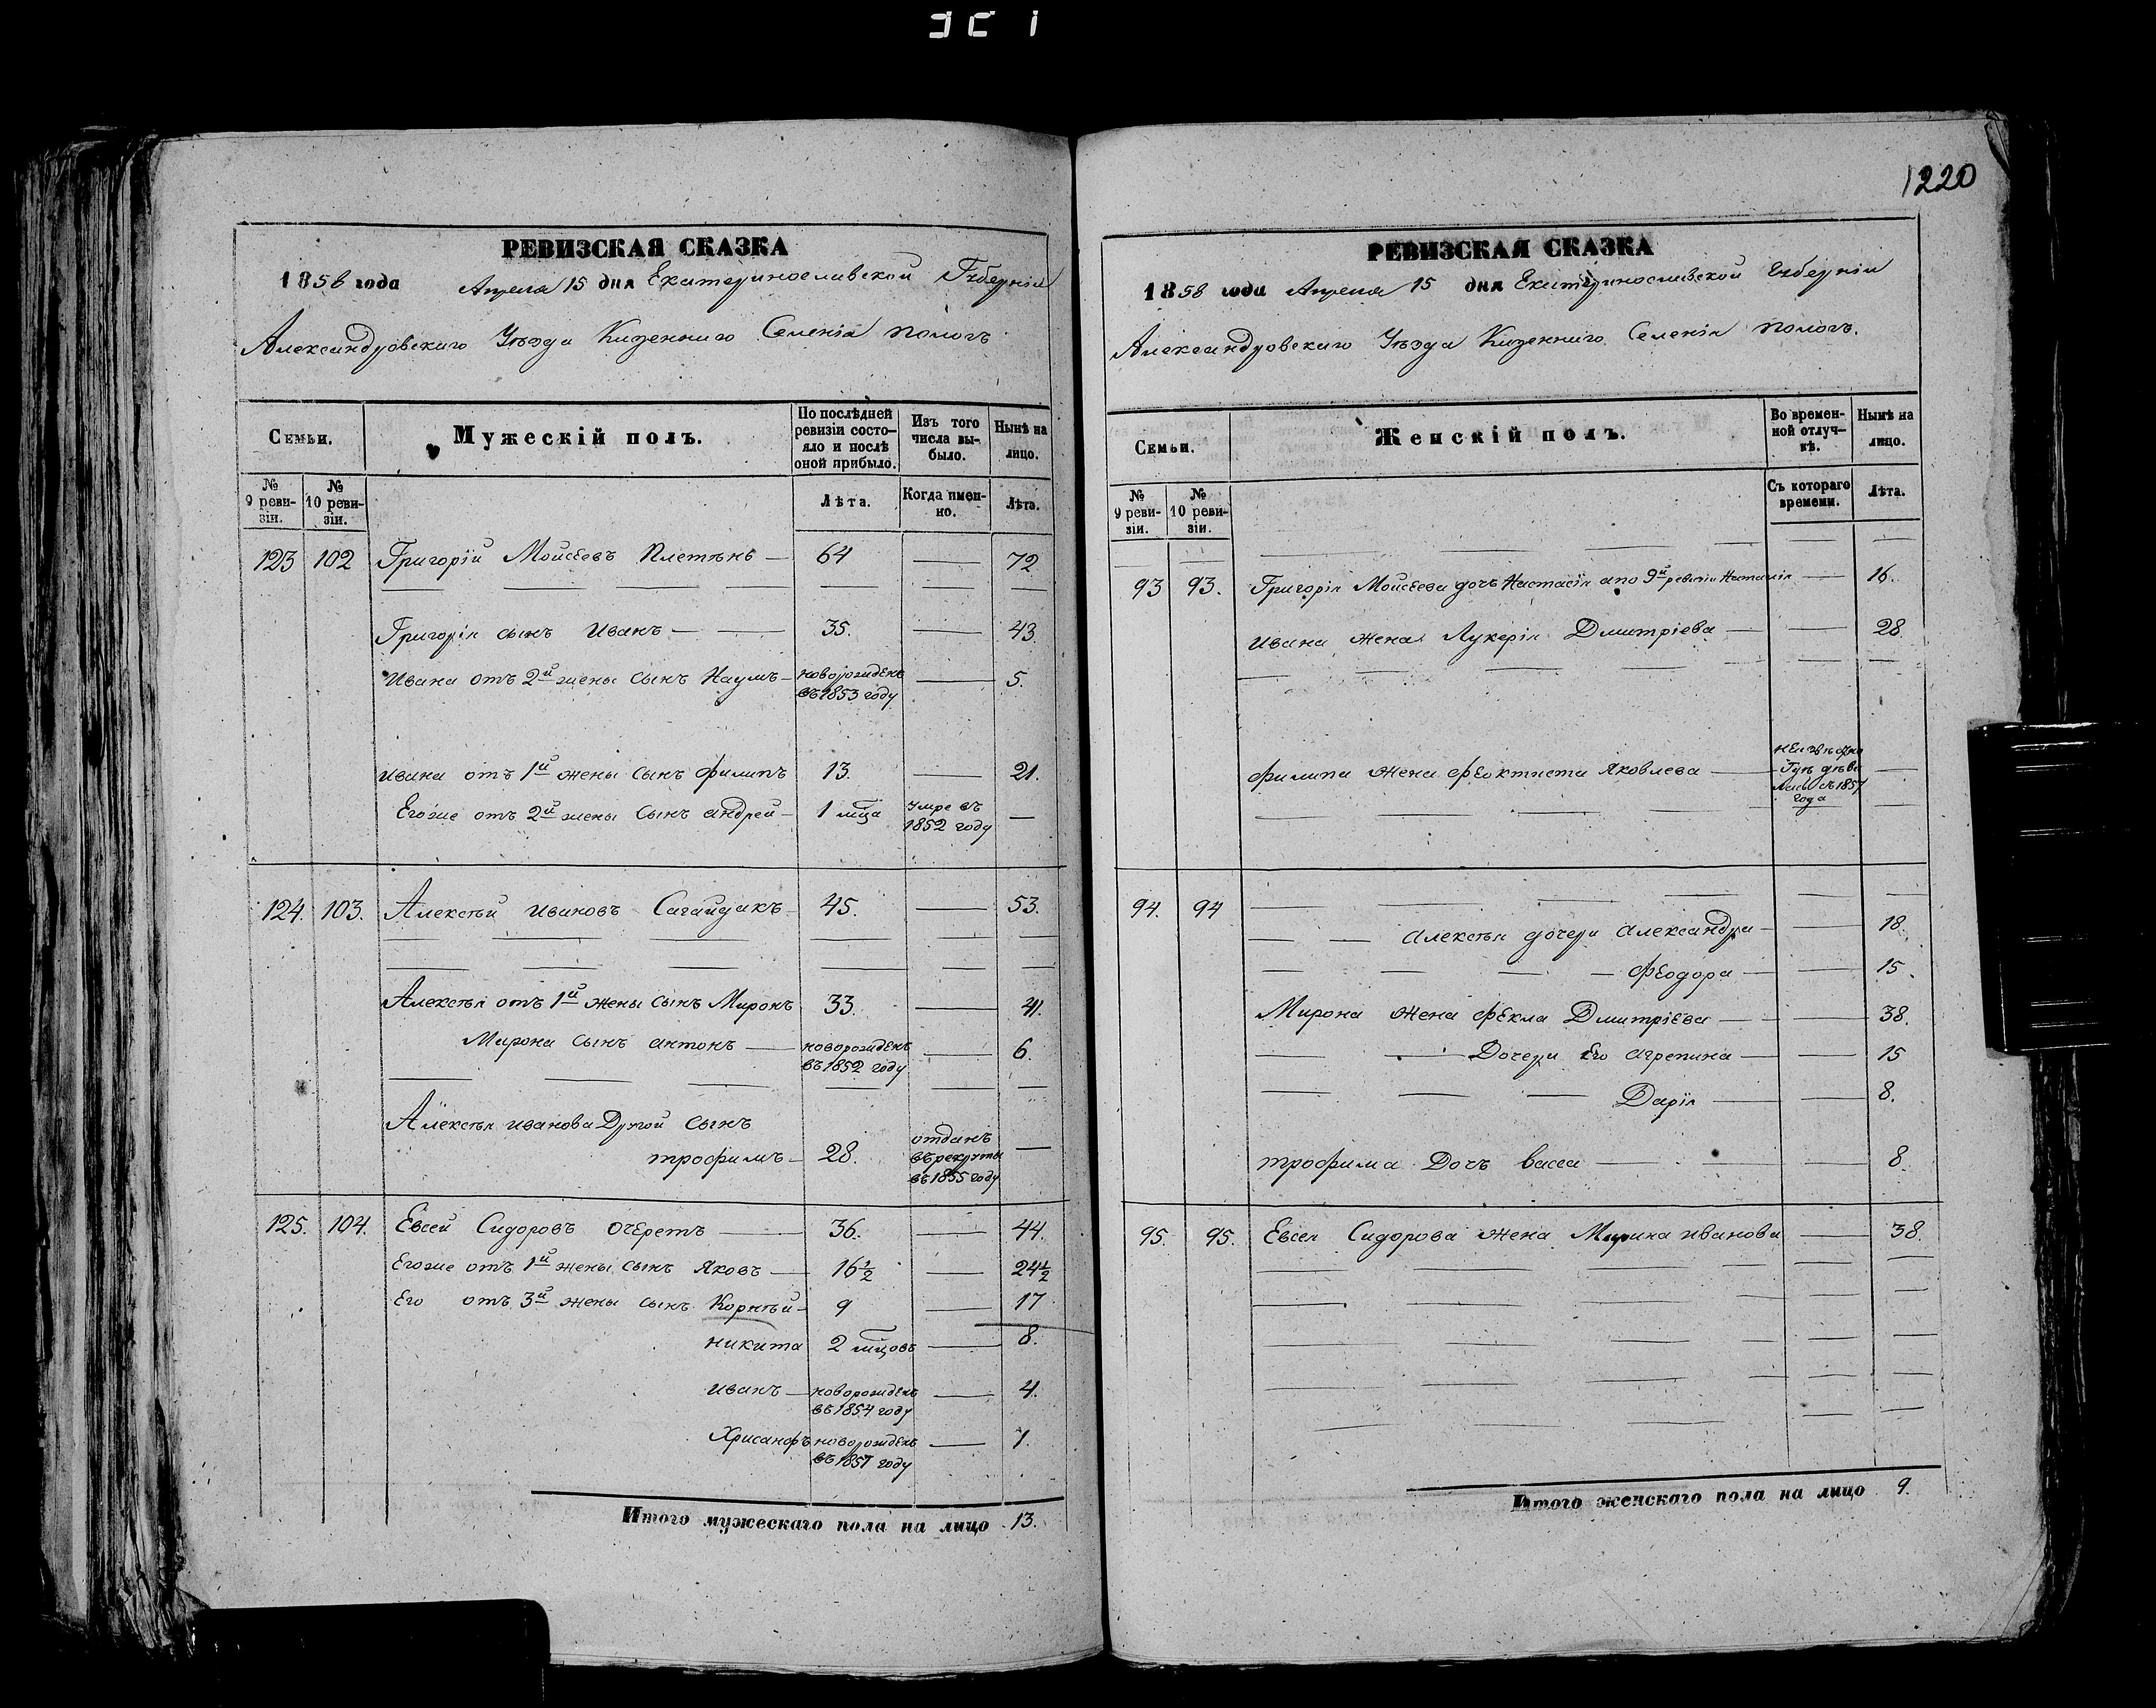 1220
РЕВИЗСКАЯ СКАЗКА
1858 года Апреля 15 дня Екатеринославской Губерніи
Александровскаго Уѣзда Казеннаго Селенія Пологъ
Семьи.
Мужескій полъ.
По послѣдней ревизіи состояло и послѣ оной прибыло.
Изъ того числа выбыло.
Нынѣ на лицо.
№ 9 ревизіи.
№ 10 ревизіи.
Лѣта.
Когда именно.
Лѣта.
123 102 Григорій Мойсеевъ Плетѣнь — 64 — 72
Григорія сынъ Иванъ — 35. — 43
Ивана отъ 2й жены сынъ Наумъ — новорожденъ въ 1853 году — 5.
Ивана отъ 1й жены сынъ Филипъ 13. — 21.
Егоже отъ 2й жены сынъ Андрей — 1 мца умре въ 1852 году —
124. 103. Алексѣй Ивановъ Сагайдакъ 45. — 53.
Алексѣя отъ 1й жены сынъ Миронъ 33. — 41.
Мирона сынъ Антонъ — новорожденъ въ 1852 году — 6.
Алексѣя Иванова Другой сынъ
трофимъ — 28. отданъ въ рекруты въ 1855 году —
125. 104. Евсей Сидоровъ Очеретъ — 36. — 44.
Егоже отъ 1й жены сынъ Яковъ — 16½ — 24½
Его отъ 3й жены сынъ Корнѣй — 9 — 17
Никита 2 мцовъ — 8.
Иванъ — новорожденъ въ 1854 году — 4.
Хрисанфъ новорожденъ въ 1857 году — 1.
Итого мужескаго пола на лицо 13.
РЕВИЗСКАЯ СКАЗКА
1858 года Апреля 15 дня Екатеринославской Губерніи
Александровскаго Уѣзда Казеннаго Селенія Пологъ.
Семьи.
Женскій полъ.
Во временной отлучкѣ.
Нынѣ на лицо.
№ 9 ревизіи.
№ 10 ревизіи.
Съ котораго времени.
Лѣта.
93 93. Григорія Мойсеева дочъ Настасія а по 9й ревизіи — 16.
Ивана жена Лукерія Дмитріева — 28.
Филипа жена Феоктиста Яковлева — съ 1857 года —
94. 94
Алексѣя дочери Александра — 18.
Феодора — 15.
Мирона жена Фекла Дмитріева — 38.
Дочери Его Агрепина — 15
Дарія — 8.
трофима Дочъ васса — 8.
95. 95. Евсея Сидорова жена Марина Иванова — 38.
Итого женскаго пола на лицо 9.